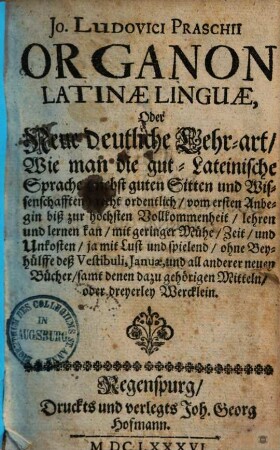 JO. LUDOVICI PRASCHII
ORGANON
LATINÆ LINGUÆ,
Oder
Neue deutliche Lehr-art/
Wie man die gut-Lateinische
Sprache nechst guten Sitten und Wis-
senschafften recht ordentlich/ vom ersten Anbe-
gin biß zur höchsten Vollkommenheit/ lehren
und lernen kan/ mit geringer Mühe/ Zeit/ und
Unkosten/ ja mit Lust und spielend/ ohne Bey-
hülffe deß Vestibuli, Januæ, und all anderer neuen
Bücher/ samt denen dazu gehörigen Mitteln/
oder dreyerley Wercklein.
IN
AUGSBURG
Regenspurg/
Druckts und verlegts Joh. Georg
Hofmann.
M DC LXXXVI